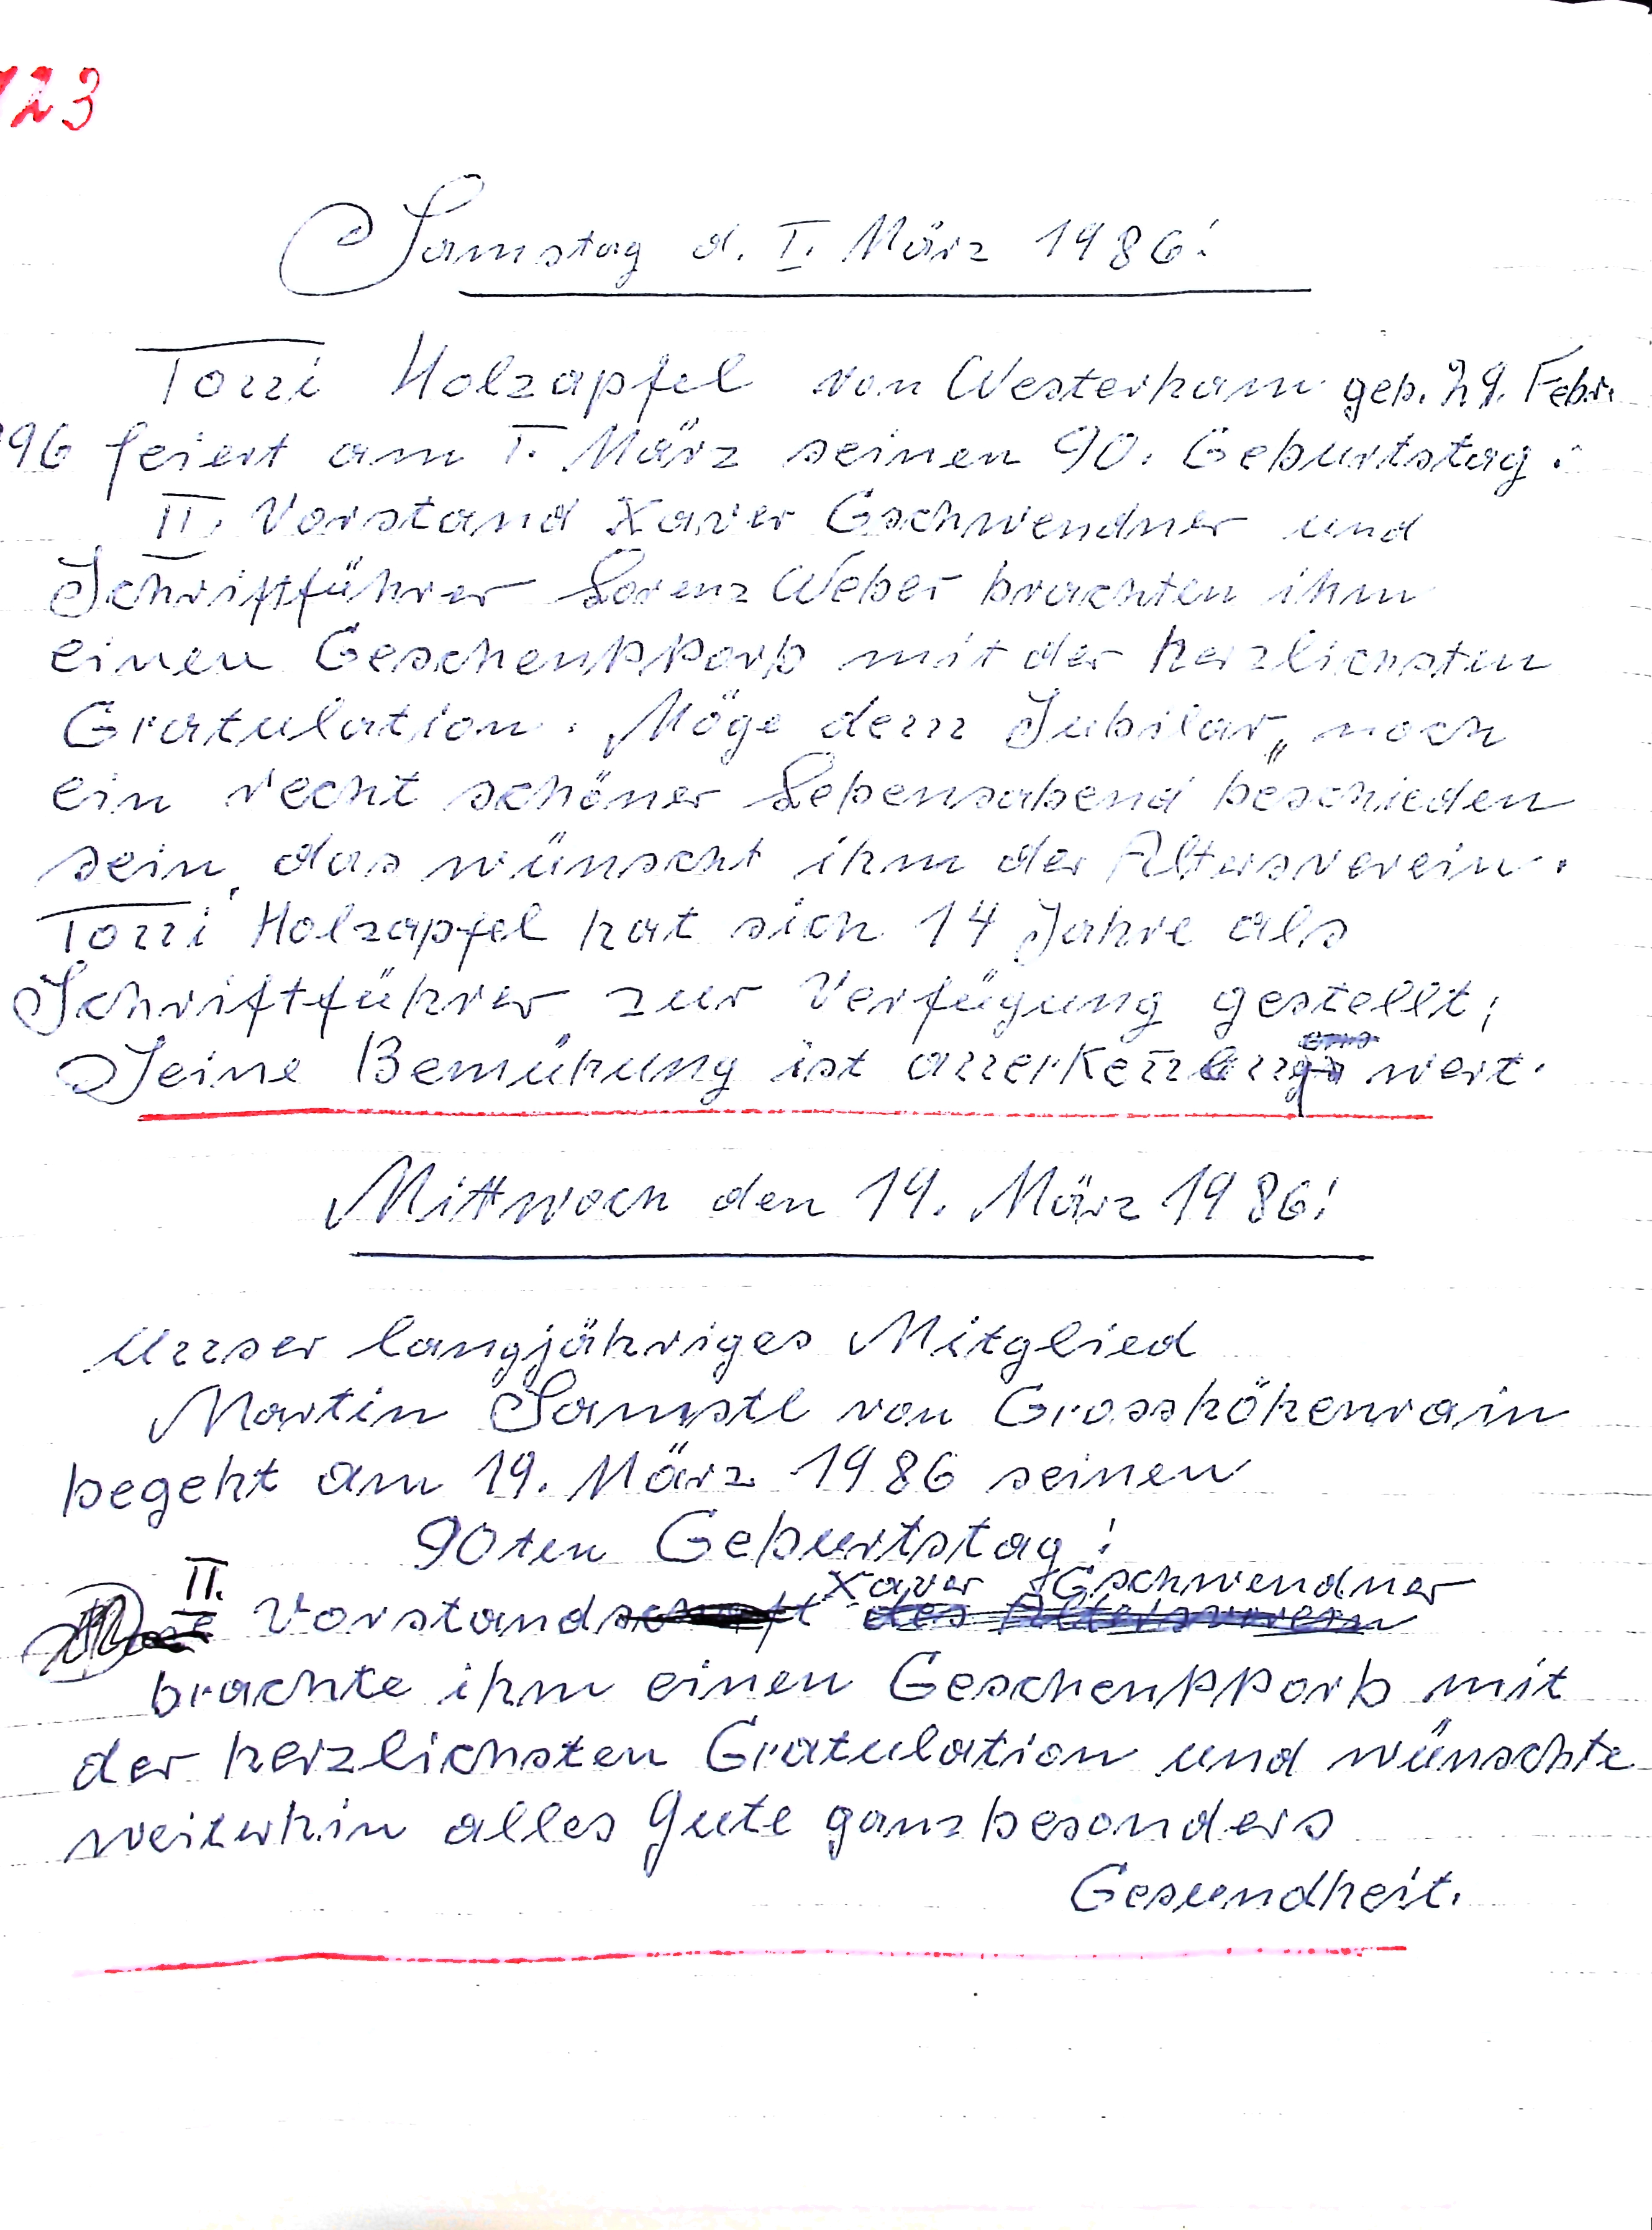 123
Samstag d. I. März 1986!
Toni Holzapfel von Westerham geb. 29. Febr.
96 feiert am I. März seinen 90. Geburtstag.
II. Vorstand Xaver Gschwendner und
Schriftführer Lorenz Weber brachten ihm
einen Geschenkkorb mit der herzlichsten
Gratulation. Möge dem Jubilar„ noch
ein recht schöner Lebensabend beschieden
sein, das wünscht ihm der Altersverein.
Toni Holzapfel hat sich 14 Jahre als
Schriftführer zur Verfügung gestellt;
Seine Bemühung ist wert.
Mittwoch den 19. März 1986!
Unser langjähriges Mitglied
Martin von Grosshöhenrain
begeht am 19. März 1986 seinen
90ten Geburtstag!
II. Vorstand Xaver Gschwendner
brachte ihm einen Geschenkkorb mit
der herzlichsten Gratulation und wünschte
weiterhin alles Gute ganz besonders
Gesundheit.